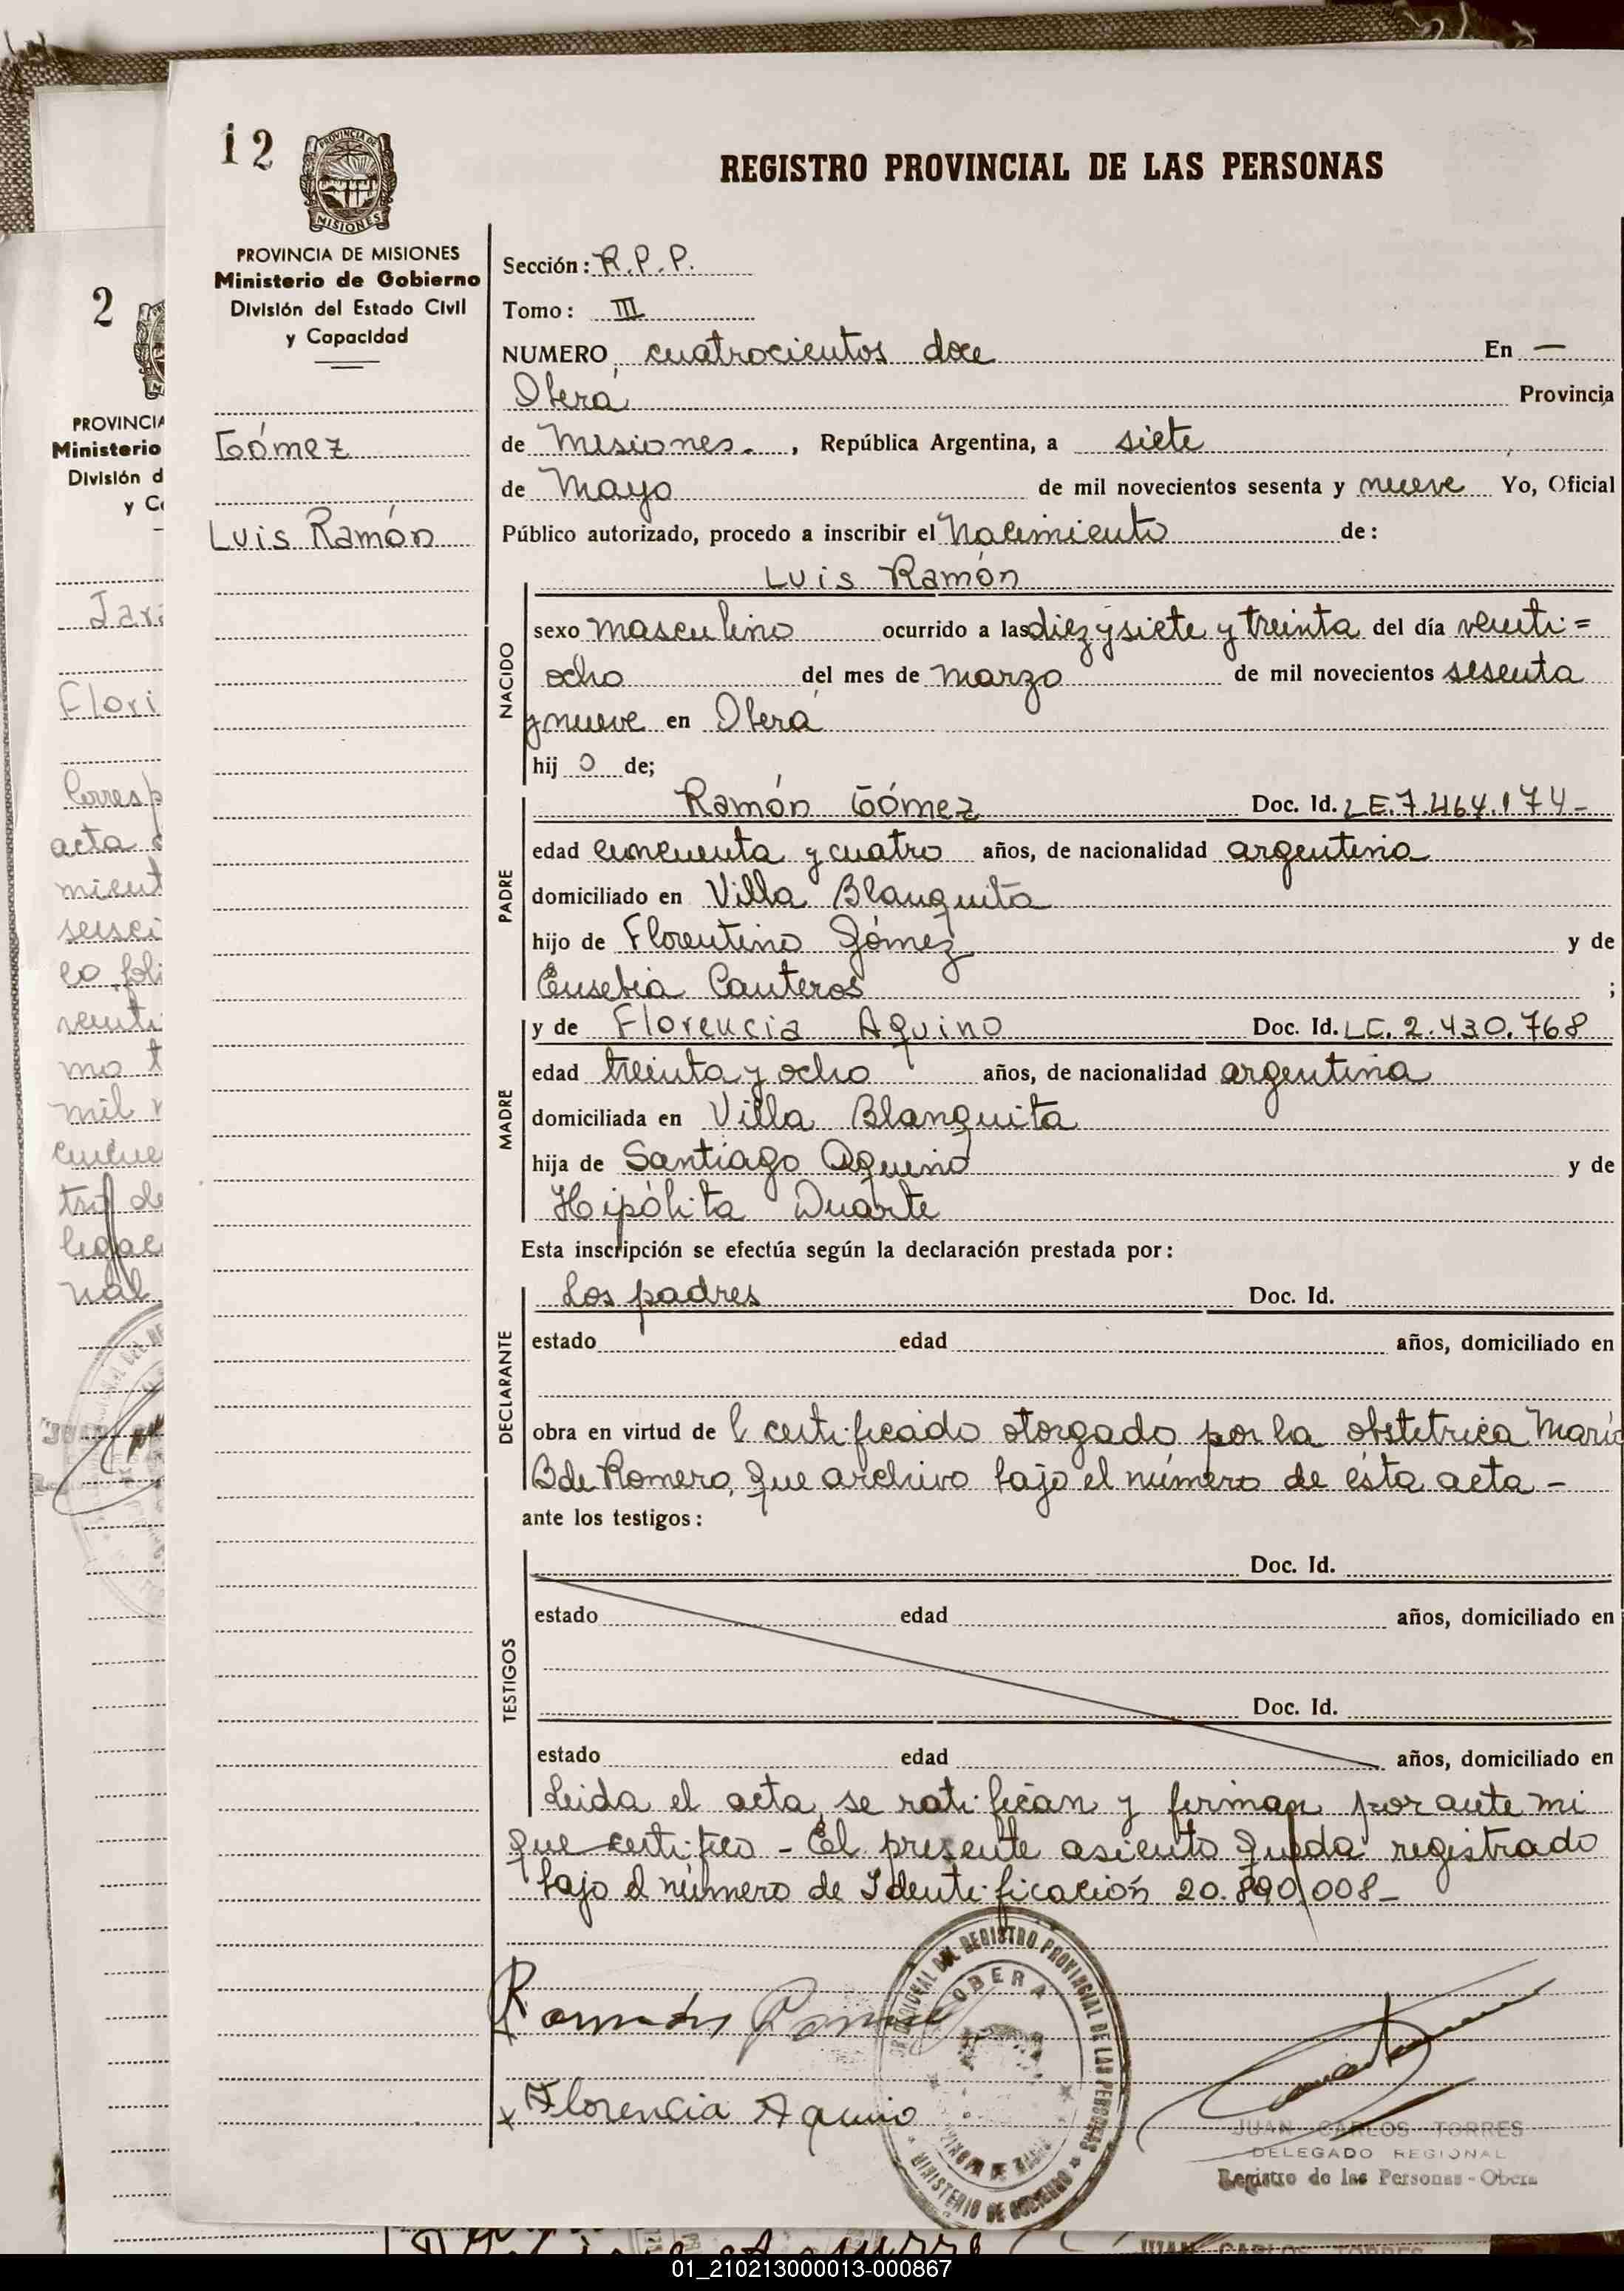 12
PROVINCIA DE
MISIONES
REGISTRO PROVINCIAL DE LAS PERSONAS
PROVINCIA DE MISIONES
Ministerio de Gobierno
División del Estado Civil
y Capacidad
Gómez
Luis Ramón
Sección: R.P.P.
Tomo: III
NUMERO cuatrocientos doce En —
Oberá Provincia
de Misiones. , República Argentina, a siete
de Mayo de mil novecientos sesenta y nueve Yo, Oficial
Público autorizado, procedo a inscribir el Nacimiento de:
NACIDO
Luis Ramón
sexo masculino ocurrido a las diez y siete y treinta del día veinti=
ocho del mes de marzo de mil novecientos sesenta
y nueve en Oberá
hij o de;
PADRE
Ramón Gómez Doc. Id. LE.7.464.174-
edad cincuenta y cuatro años, de nacionalidad argentina
domiciliado en Villa Blanquita
hijo de Florentino Gómez y de
Eusebia Canteros ;
MADRE
y de Florencia Aquino Doc. Id. LC. 2.430.768
edad treinta y ocho años, de nacionalidad argentina
domiciliada en Villa Blanquita
hija de Santiago Aquino y de
Hipólita Duarte
Esta inscripción se efectúa según la declaración prestada por:
DECLARANTE
Los padres Doc. Id.
estado edad años, domiciliado en
obra en virtud de l certificado otorgado por la obstetrica María
B de Romero, que archivo bajo el número de ésta acta -
ante los testigos:
TESTIGOS
Doc. Id.
estado edad años, domiciliado en
Doc. Id.
estado edad años, domiciliado en
Leida el acta, se ratifican y firman por ante mi
que certifico - El presente asiento queda registrado
bajo el número de Identificación 20.890.008-
Ramón Gomez
x Florencia Aquino
REGISTRO PROVINCIAL DE LAS PERSONAS
OBERA
MINISTERIO DE GOBIERNO
JUAN CARLOS TORRES
DELEGADO REGIONAL
Registro de las Personas - Obera
2
PROVINCIA
Ministerio
División d
y C
Jara
Flori
Corresp
acta
mient
seisci
co foli
veinti
mo t
mil
tro de
legac
nal
JUAN
JUAN CARLOS TORRES
01_210213000013-000867